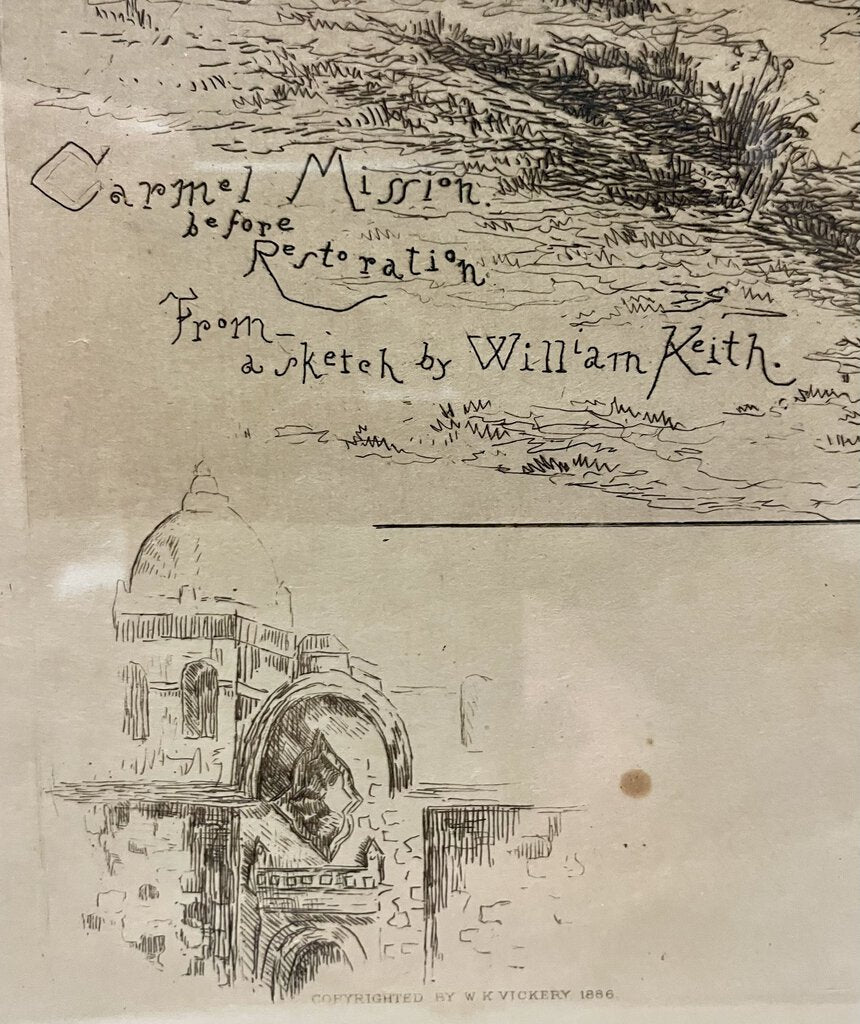 Carmel Mission.
before
Restoration.
From
a sketch by William Keith.
COPYRIGHTED BY W. K VICKERY 1886.